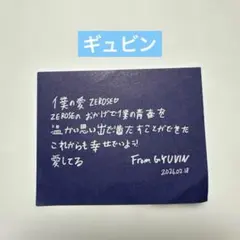 ギュビン
僕の愛 ZEROSE♡
ZEROSEの おかげで僕の青春を
温かい思い出で満たすことができた
これからも 幸せでいよう!
愛してる
From GYUVIN
2026.02.18